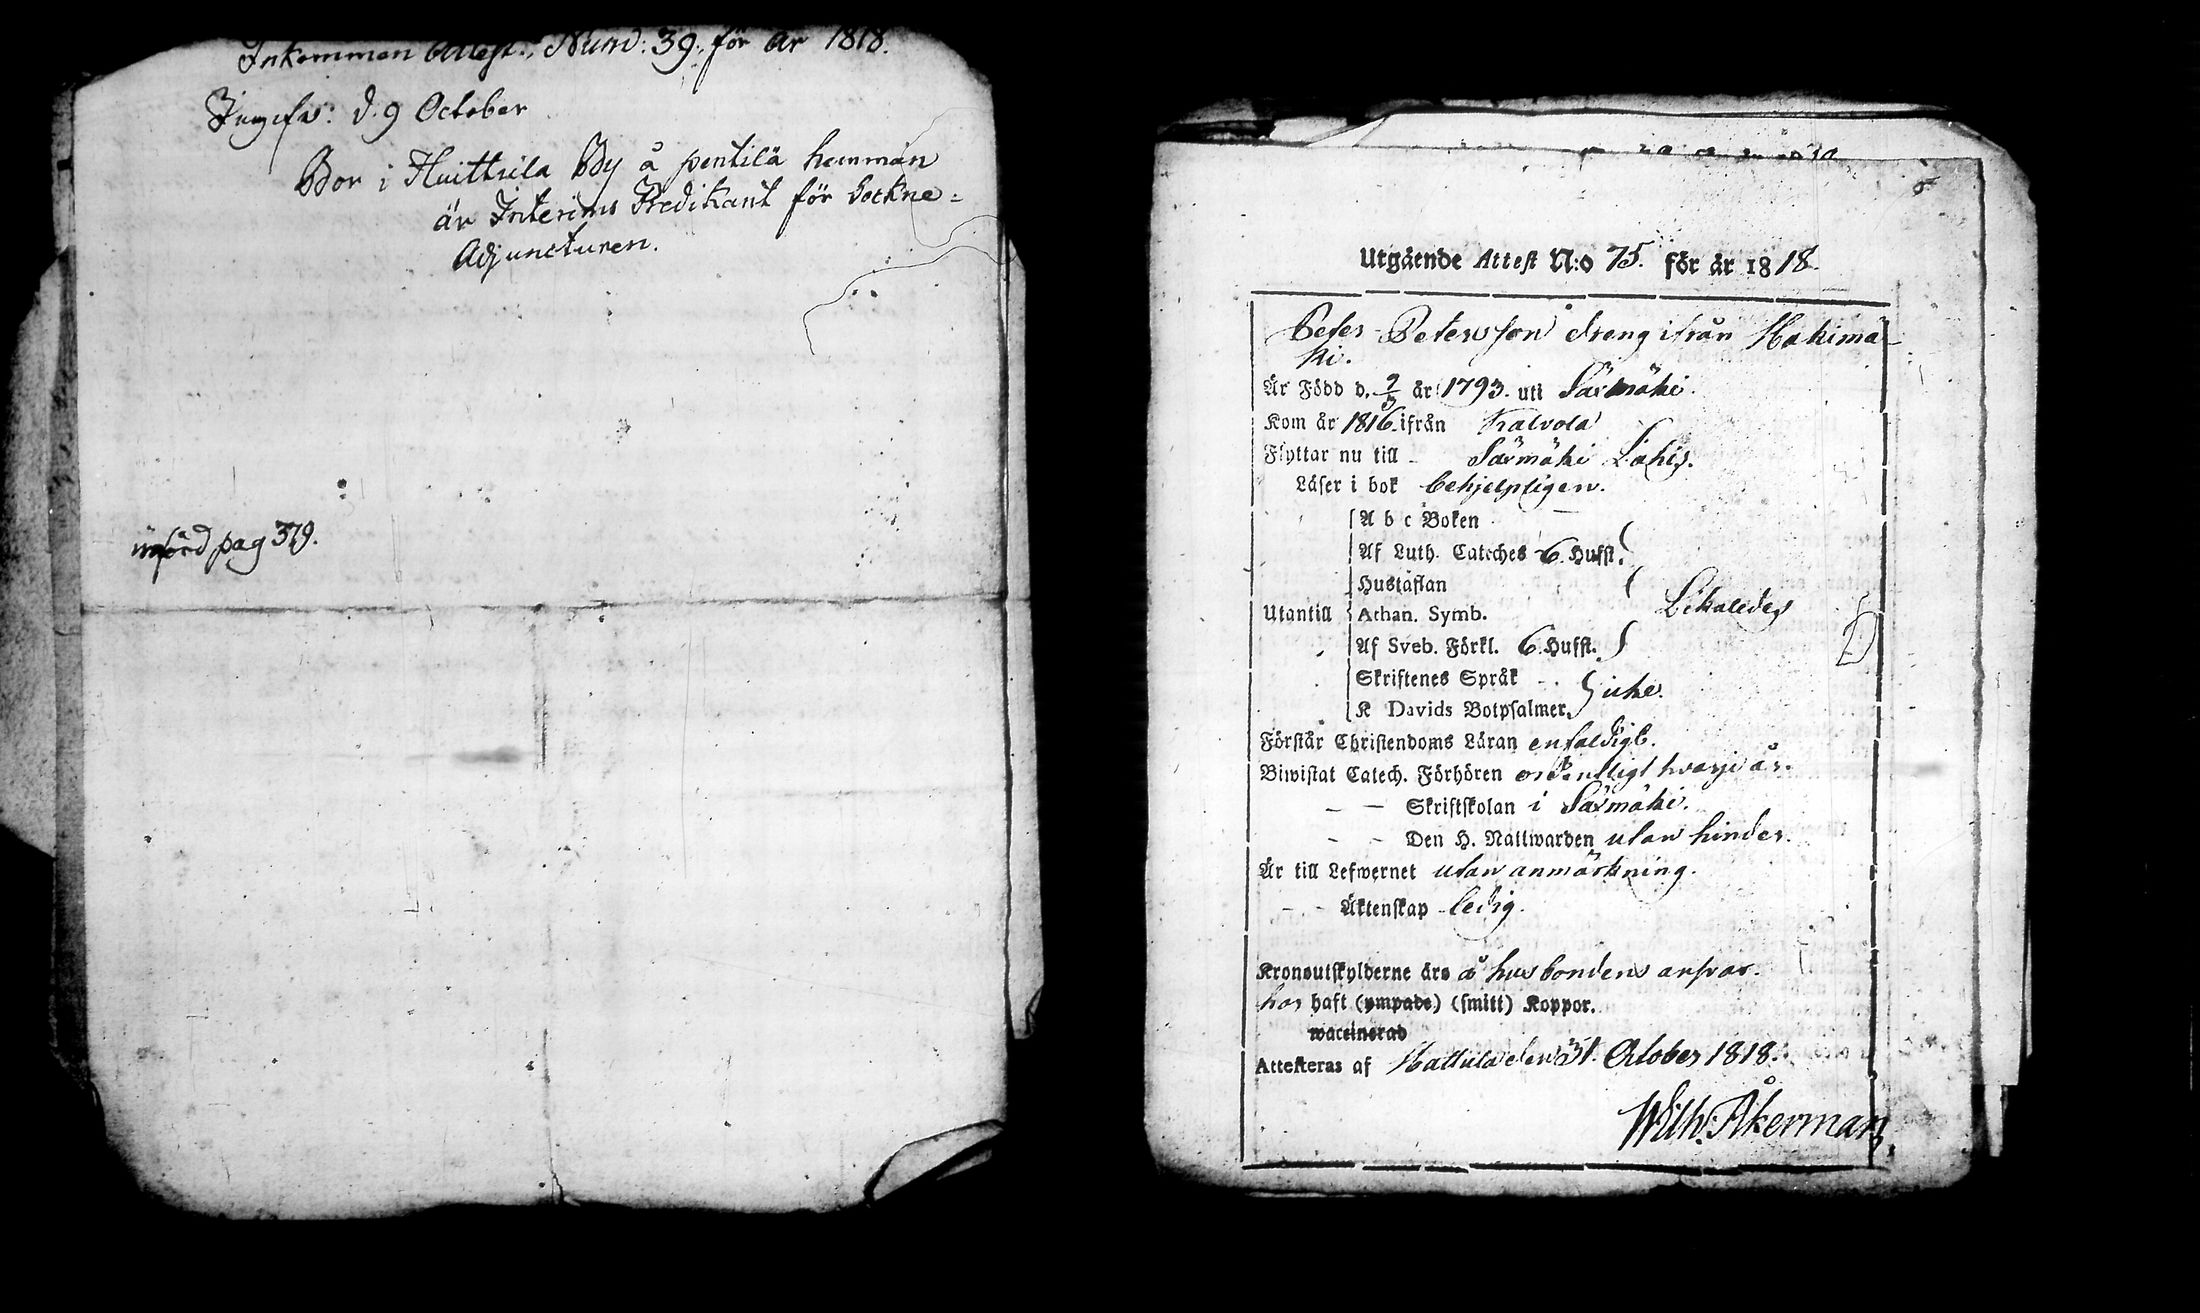 Inkommen Attest: Num: 39. för år 1818.
d. 9 October
Bor i Huittula By å pentilä hemman
är Interims Predikant för Sockne-
Adjuncturen.
införd pag 379.
Utgående Attest N:o 75. för år 1818.
Peter Petersson dreng ifrån Hakimä-
ki.
Är Född d. 9/3 år 1793. uti Särmäki.
Kom år 1816. ifrån Kalvola
Flyttar nu till - Särmäki Lahis.
Läser i bok behjelpligen.
A b c Boken
Af Luth. Cateches 6. Hufst.
Hustaflan
Utantill Athan. Symb. Likaledes
Af Sveb. Förkl. 6 Hufst.
Skriftenes Språk - . icke.
K Davids Botpsalmer.
Förstår Christendoms Läran enfaldigt.
Biwistat Catech. Förhören ordentligt hvarje år.
- - Skriftskolan i Särmäki.
- - Den H. Nattwarden utan hinder.
Är till Lefwernet utan anmärkning.
- - Äktenskap ledig.
Kronoutskylderne äro å husbondens ansvar.
har haft (ympade) (smitt) Koppor.
waccinerad
Attesteras af Hattula den 31. October 1818.
Wilh: Åkerman.